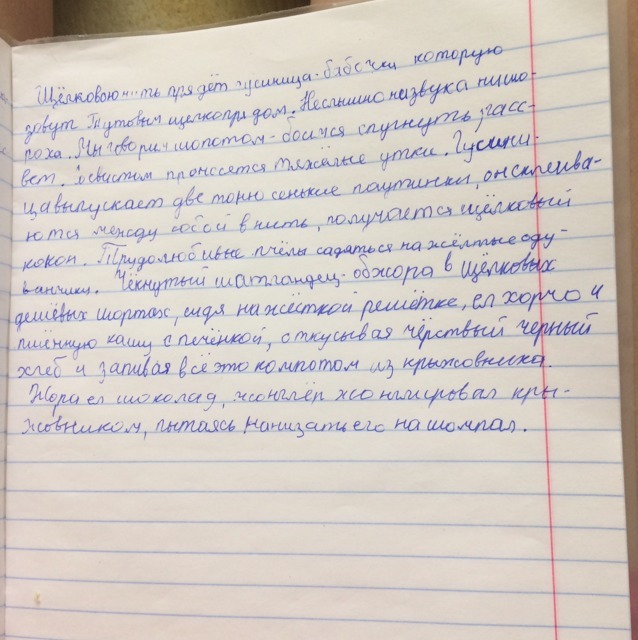 Щёлковою нить прядёт гусиница-бабочки которую
зовут Тутовым щелкопрядом. Неслышно назвука ни шо-
роха. Мы говорим шопотом - боимся спугнуть, расс-
вет. Со свистом проносятся тяжёлые утки. Гусини-
ца выпускает две тонюсенькие паутинки, он склеива-
ются между собой в нить, получается щёлковый
кокон. Трудолюбивые пчёлы садяться на жёлтые оду-
ванчики. Чёкнутый шатландец-обжора в щёлковых
дешёвых шортах, сидя на жёсткой решётке, ел харчо и
пшённую кашу с печёнкой, откусывая чёрствый черный
хлеб и запивая всё это компотом из крыжовника.
Жора ел шоколад, жонглёр жонглировал кры-
жовником, пытаясь нанизать его на шомпал.